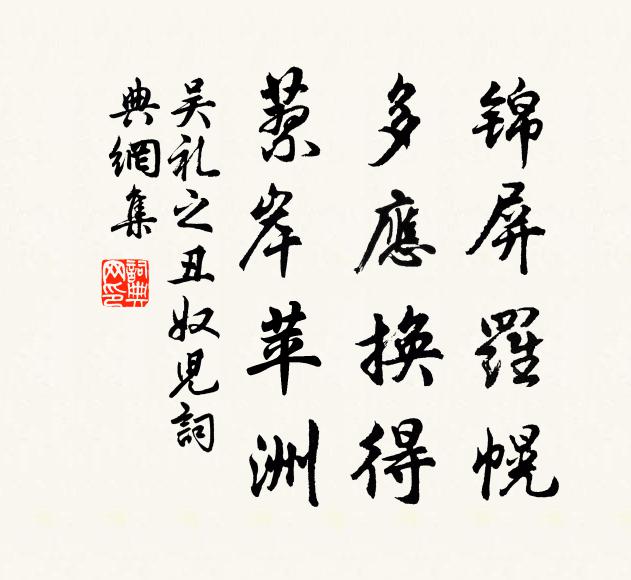 锦屏羅幌
多應換得
蓼岸苹洲
吴礼之丑奴兒詞
典網集
詞典
网印